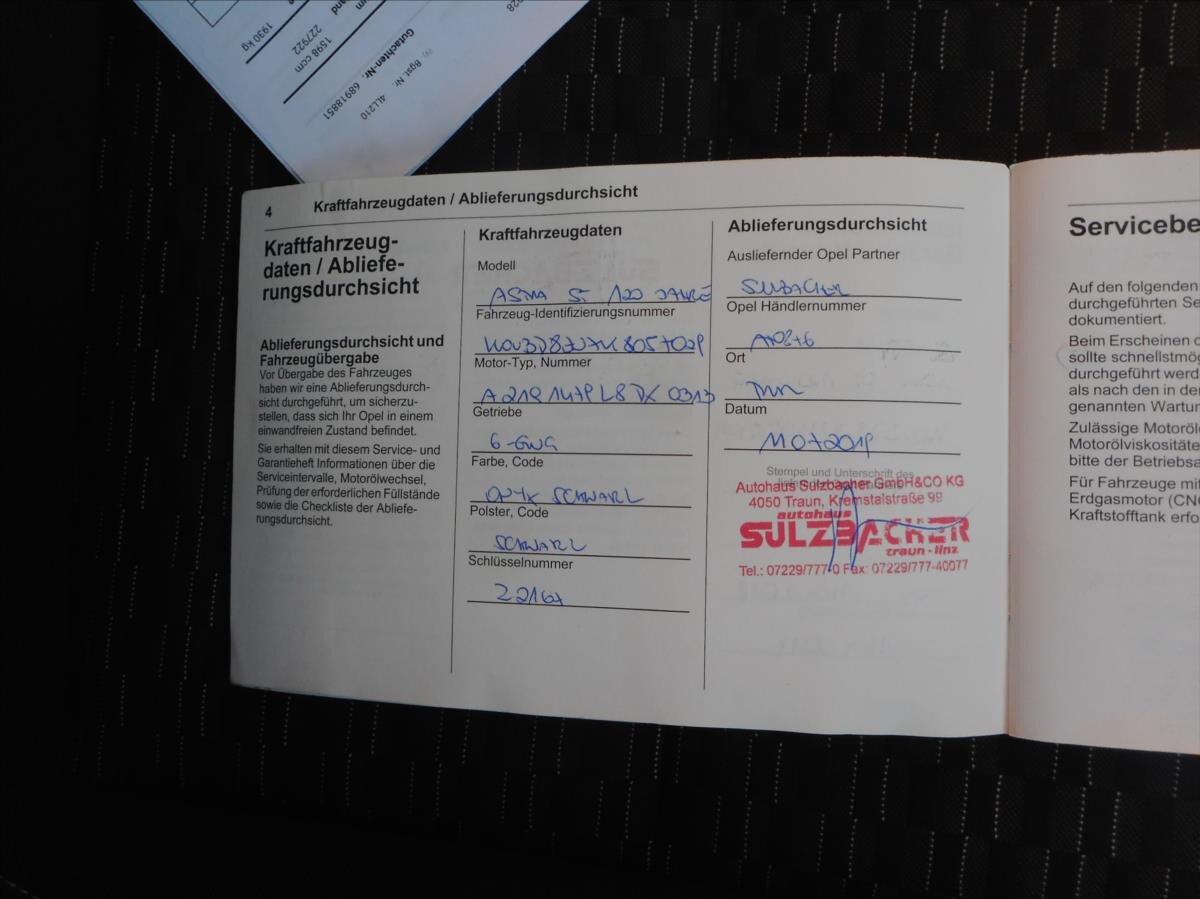 1930 kg
227922
1598 ccm
Gutachten-Nr. 68918851
Bgst. Nr. 4LL210
4 Kraftfahrzeugdaten / Ablieferungsdurchsicht
Kraftfahrzeug-
daten / Abliefe-
rungsdurchsicht
Ablieferungsdurchsicht und
Fahrzeugübergabe
Vor Übergabe des Fahrzeuges
haben wir eine Ablieferungsdurch-
sicht durchgeführt, um sicherzu-
stellen, dass sich Ihr Opel in einem
einwandfreien Zustand befindet.
Sie erhalten mit diesem Service- und
Garantieheft Informationen über die
Serviceintervalle, Motorölwechsel,
Prüfung der erforderlichen Füllstände
sowie die Checkliste der Abliefe-
rungsdurchsicht.
Kraftfahrzeugdaten
Modell
120 JAHRE
Fahrzeug-Identifizierungsnummer
Motor-Typ, Nummer
Getriebe
6-GWG
Farbe, Code
ONYX SCHWARZ
Polster, Code
SCHWARZ
Schlüsselnummer
Z2167
Ablieferungsdurchsicht
Ausliefernder Opel Partner
Opel Händlernummer
Ort
Datum
Stempel und Unterschrift des
Autohaus Sulzbacher GmbH&CO KG
4050 Traun, Kremstalstraße 99
autohaus
SULZBACHER
traun-linz
Tel.: 07229/777-0 Fax: 07229/777-40077
Servicebe
Auf den folgenden
durchgeführten Se
dokumentiert.
Beim Erscheinen d
sollte schnellstmög
durchgeführt werd
als nach den in de
genannten Wartun
Zulässige Motoröl
Motorölviskositäte
bitte der Betriebsa
Für Fahrzeuge mit
Erdgasmotor (CNG
Kraftstofftank erfo